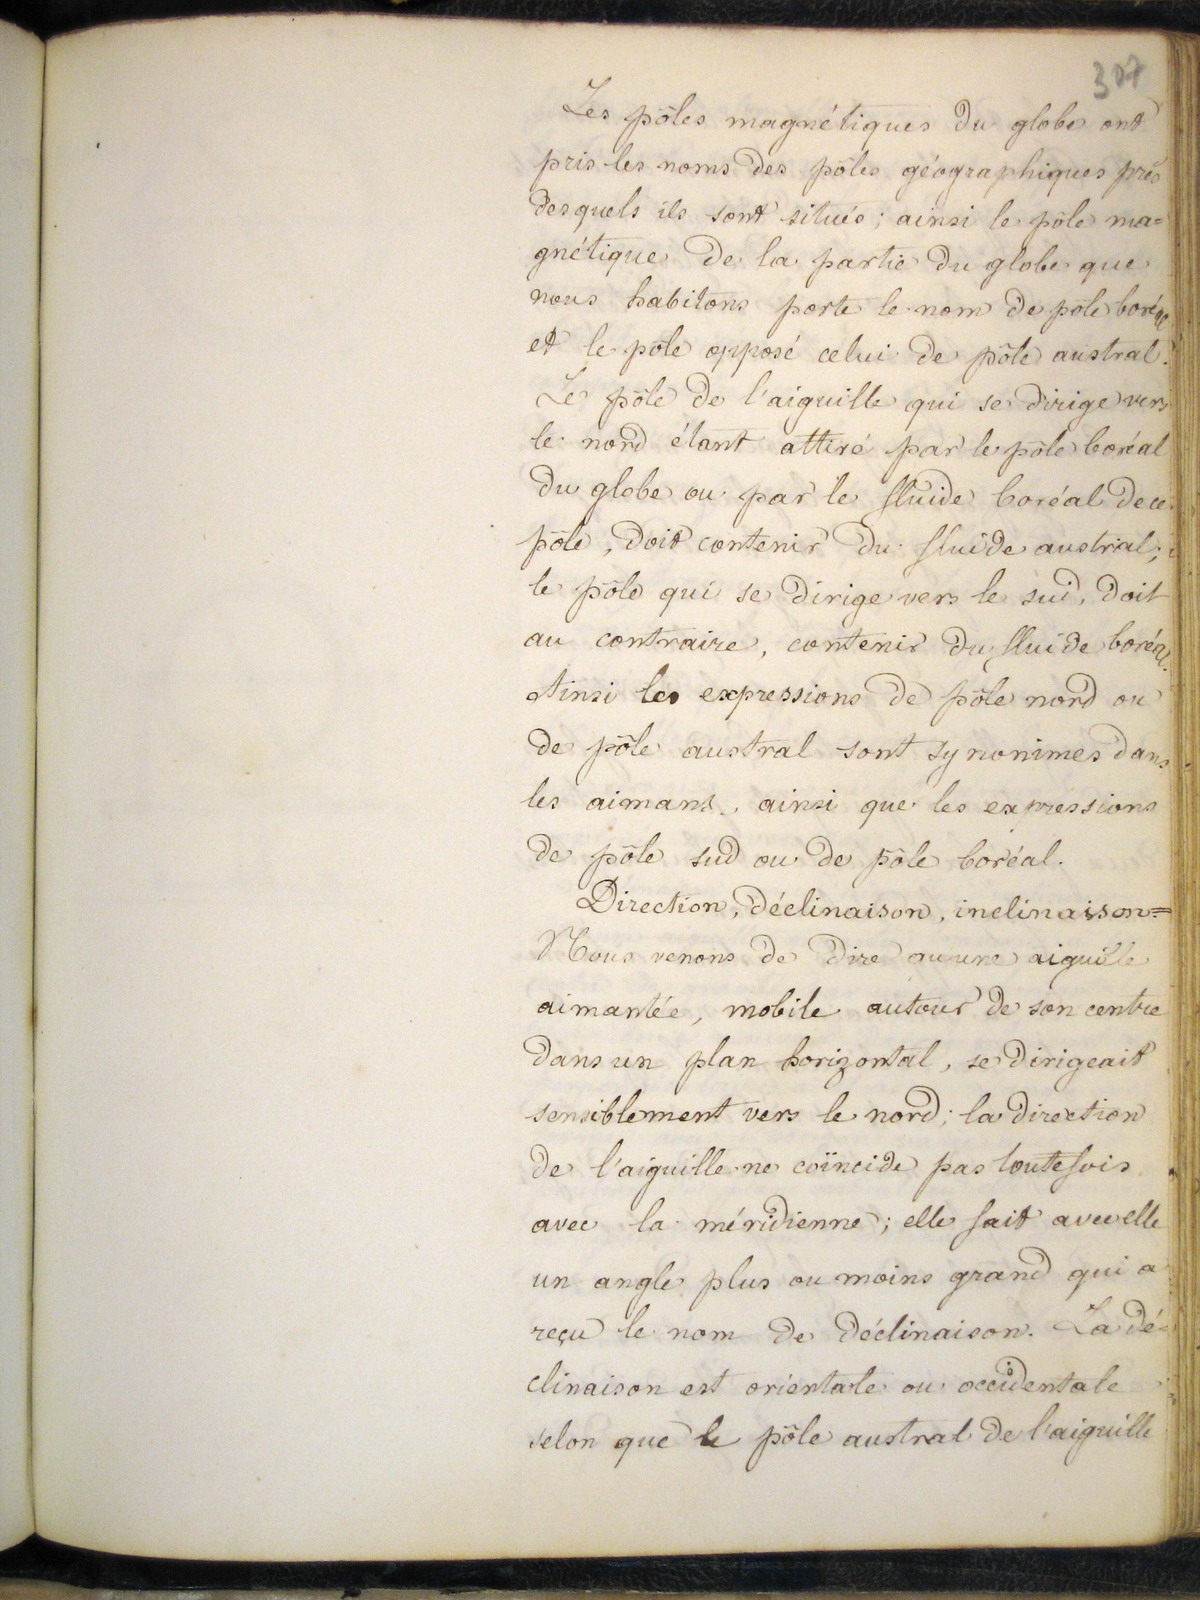 307
Les pôles magnétiques du globe ont
pris les noms des pôles géographiques près
desquels ils sont situés ; ainsi le pôle ma=
gnétique de la partie du globe que
nous habitons porte le nom de pôle boréal
et le pôle opposé celui de pôle austral.
Le pôle de l'aiguille qui se dirige vers
le nord étant attiré par le pôle boréal
du globe ou par le fluide boréal de ce
pôle, doit contenir du fluide austral ;
le pôle qui se dirige vers le sud, doit
au contraire, contenir du fluide boréal.
Ainsi les expressions de pôle nord ou
de pôle austral sont synonimes dans
les aimans, ainsi que les expressions
de pôle sud ou de pôle boréal.
Direction, déclinaison, inclinaison=
Nous venons de dire qu'une aiguille
aimantée, mobile autour de son centre
dans un plan horizontal, se dirigeait
sensiblement vers le nord ; la direction
de l'aiguille ne coïncide pas toutefois
avec la méridienne ; elle fait avec elle
un angle plus ou moins grand qui a
reçu le nom de déclinaison. La dé-
clinaison est orientale ou occidentale
selon que le pôle austral de l'aiguille